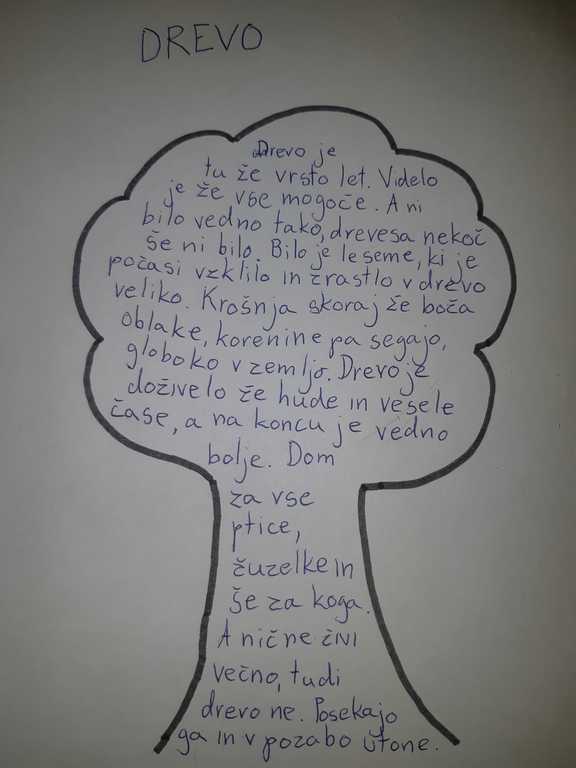 DREVO
Drevo je
tu že vrsto let. Videlo
je že vse mogoče. A ni
bilo vedno tako, drevesa nekoč
še ni bilo. Bilo je le seme, ki je
počasi vzklilo in zrastlo v drevo
veliko. Krošnja skoraj že boža
oblake, korenine pa segajo,
globoko v zemljo. Drevo je
doživelo že hude in vesele
čase, a na koncu je vedno
bolje. Dom
za vse
ptice,
žuželke in
še za koga.
A nič ne živi
večno, tudi
drevo ne. Posekajo
ga in v pozabo utone.